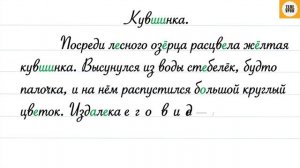 Кувшинка.
Посреди лесного озёрца расцвела жёлтая
кувшинка. Высунулся из воды стебелёк, будто
палочка, и на нём распустился большой круглый
цветок. Издалека его вид